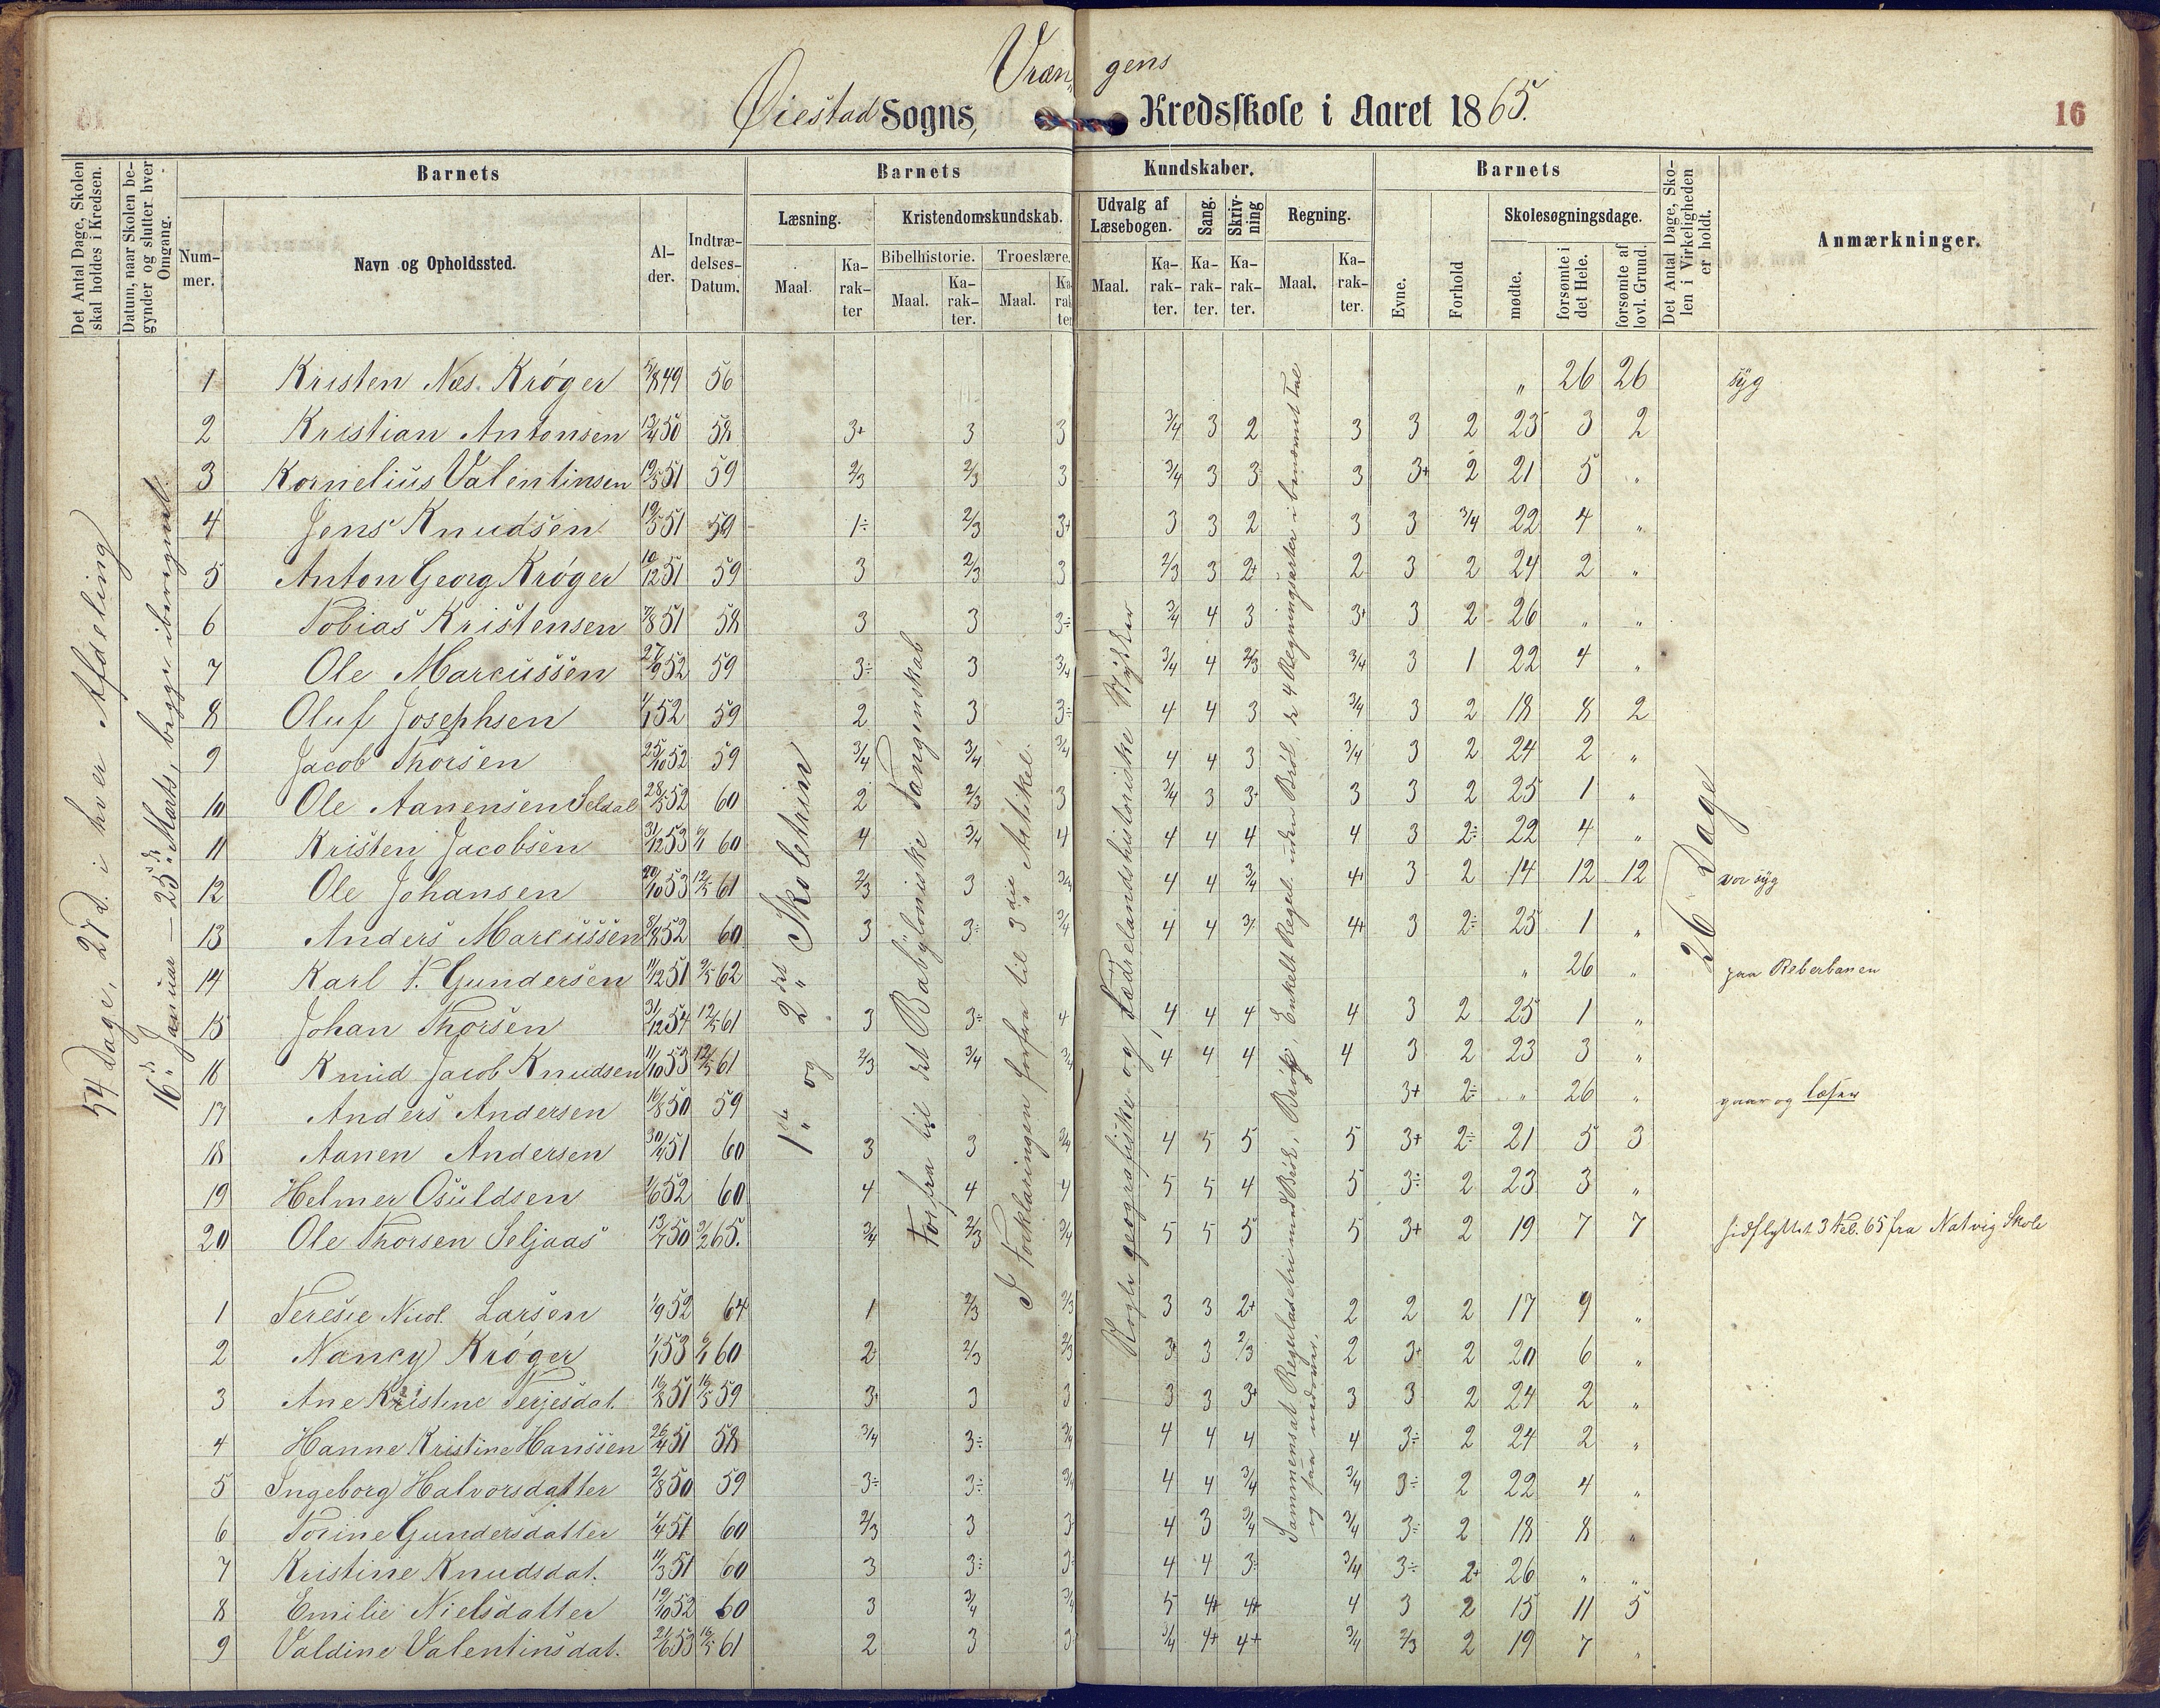 Vræn„ gens
Øiestad Sogns, Kredsskole i Aaret 1865.
16
Det Antal Dage, Skolen skal holdes i Kredsen.
Datum, naar Skolen begynder og slutter hver Omgang.
Barnets
Nummer.
Navn og Opholdssted.
Alder.
Indtrædelses-Datum.
Barnets Kundskaber.
Læsning.
Maal.
Karakter
Kristendomskundskab.
Bibelhistorie.
Maal.
Karakter.
Troeslære.
Maal.
Karakter
Udvalg af Læsebogen.
Maal.
Karakter.
Sang.
Karakter.
Skrivning
Karakter.
Regning.
Maal.
Karakter.
Barnets
Evne.
Forhold
Skolesøgningsdage.
mødte.
forsømte i det Hele.
forsømte af lovl. Grund.
Det Antal Dage, Skolen i Virkeligheden er holdt.
Anmærkninger.
54 Dage, 27 d. i hver Afdeling
16de Januar — 25de Marts, begge iberegnet.
1ste og 2det Skoletrin
Forfra til det Babyloniske Fangenskab
I Forklaringen forfra til 3die Artikel.
Nogle geografiske og fædrelandshistoriske Stykker
Sammensat Reguladetri med Brøk, Brøk, Enkelt Regul. uden Brøk, de 4 Regningsarter i benævnte Tal og saa nedover.
26 Dage
1 Kristen Næs. Krøger 5/8 49 56 „ 26 26 syg
2 Kristian Antonsen 13/4 50 58 3+ 3 3 3/4 3 2 3 3 2 23 3 2
3 Kornelius Valentinsen 19/5 51 59 2/3 2/3 3 3/4 3 3 3 3+ 2 21 5 „
4 Jens Knudsen 19/5 51 59 1÷ 2/3 3+ 3 3 2 3 3 3/4 22 4 „
5 Anton Georg Krøger 10/12 51 59 3 2/3 3 2/3 3 2+ 2 3 2 24 2 „
6 Tobias Kristensen 7/8 51 58 3 3 3÷ 3/4 4 3 3+ 3 2 26 „ „
7 Ole Marcussen 27/9 52 59 3÷ 3 3/4 3/4 4 2/3 3/4 3 1 22 4 „
8 Oluf Josephsen 1/1 52 59 2 3 3÷ 4 4 3 3/4 3 2 18 8 2
9 Jacob Thorsen 25/10 52 59 3/4 3/4 3/4 4 4 3 3/4 3 2 24 2 „
10 Ole Aanensen Seldal 28/5 52 60 2 2/3 3 3/4 3 3+ 3 3 2 25 1 „
11 Kristen Jacobsen 31/12 53 9/1 60 4 3/4 4 4 4 4 4 3 2÷ 22 4 „
12 Ole Johansen 20/10 53 12/5 61 2/3 3 3/4 4 4 3/4 4+ 3 2 14 12 12 var syg
13 Anders Marcussen 8/8 52 60 3 3÷ 3/4 4 4 3/ 4+ 3 2÷ 25 1 „
14 Karl F. Gundersen 11/12 51 9/5 62 „ 26 „ paa Reberbanen
15 Johan Thorsen 31/12 54 12/5 61 3 3÷ 4 4 4 4 4 3 2 25 1 „
16 Knud Jacob Knudsen 11/10 53 12/5 61 2/3 3/4 3/4 4 4 4 4 3 2 23 3 „
17 Anders Andersen 16/8 50 59 3+ 2÷ „ 26 „ gaar og læser
18 Aanen Andersen 30/4 51 60 3 3 3/4 4 5 5 5 3+ 2÷ 21 5 3
19 Helmer Osuldsen 1/6 52 60 4 4 4 5 5 4 5 3÷ 2 23 3 „
20 Ole Thorsen Seljaas 13/7 50 9/2 65. 3/4 2/3 3/4 5 5 5 5 3+ 2 19 7 7 hidflyttet 3 Feb. 65 fra Natvig Skole
1 Teresie Nicol. Larsen 1/9 52 64 1 2/3 2/3 3 3 2+ 2 2 2 17 9 „
2 Nancy Krøger 1/1 53 9/1 60 2 2/3 2/3 3 3 2/3 2 3+ 2 20 6 „
3 Ane Kristine Terjesdat. 16/8 51 16/5 59 3+ 3 3 3 3 3+ 3 3 2 24 2 „
4 Hanne Kristine Hanssen 26/4 51 58 3/4 3÷ 3/4 4 4 4 4 3÷ 2 24 2 „
5 Ingeborg Halvorsdatter 2/8 50 59 3÷ 3÷ 3/4 4 4 3/4 3/4 3÷ 2 22 4 „
6 Torine Gundersdatter 1/4 51 60 2/3 3 3 4 3 3/4 3/4 3÷ 2 18 8 „
7 Kristine Knudsdat. 11/3 51 60 3 3÷ 3 4 4 3 3/4 3÷ 2+ 26 „ „
8 Emilie Nielsdatter 19/10 52 60 3 3/4 3/4 5 4+ 4+ 4 3 2 15 11 5
9 Valdine Valentinsdat. 21/6 53 16/5 61 2 3 3 3/4 4+ 4+ 3/4 2/3 2 19 7 „